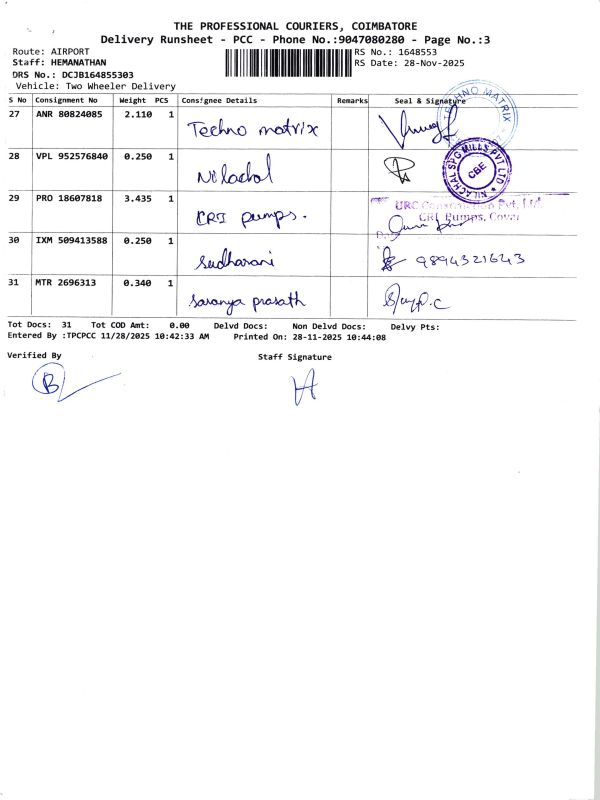 THE PROFESSIONAL COURIERS, COIMBATORE
Delivery Runsheet - PCC - Phone No.:9047080280 - Page No.:3
Route: AIRPORT
Staff: HEMANATHAN
DRS No.: DCJB164855303
Vehicle: Two Wheeler Delivery
RS No.: 1648553
RS Date: 28-Nov-2025
S No Consignment No Weight PCS Consignee Details Remarks Seal & Signature
27 ANR 80824085 2.110 1 Techno matrix
TECHNO MATRIX
28 VPL 952576840 0.250 1 Nilachal
NILACHAL SPG MILLS PVT LTD
CBE
29 PRO 18607818 3.435 1 CRI pumps.
URC Construction Pvt. Ltd.
CRI Pumps, Covai
30 IXM 509413588 0.250 1 Sudharani 9894321643
31 MTR 2696313 0.340 1 Saranya prasath
Tot Docs: 31 Tot COD Amt: 0.00 Delvd Docs: Non Delvd Docs: Delvy Pts:
Entered By :TPCPCC 11/28/2025 10:42:33 AM Printed On: 28-11-2025 10:44:08
Verified By Staff Signature
B H